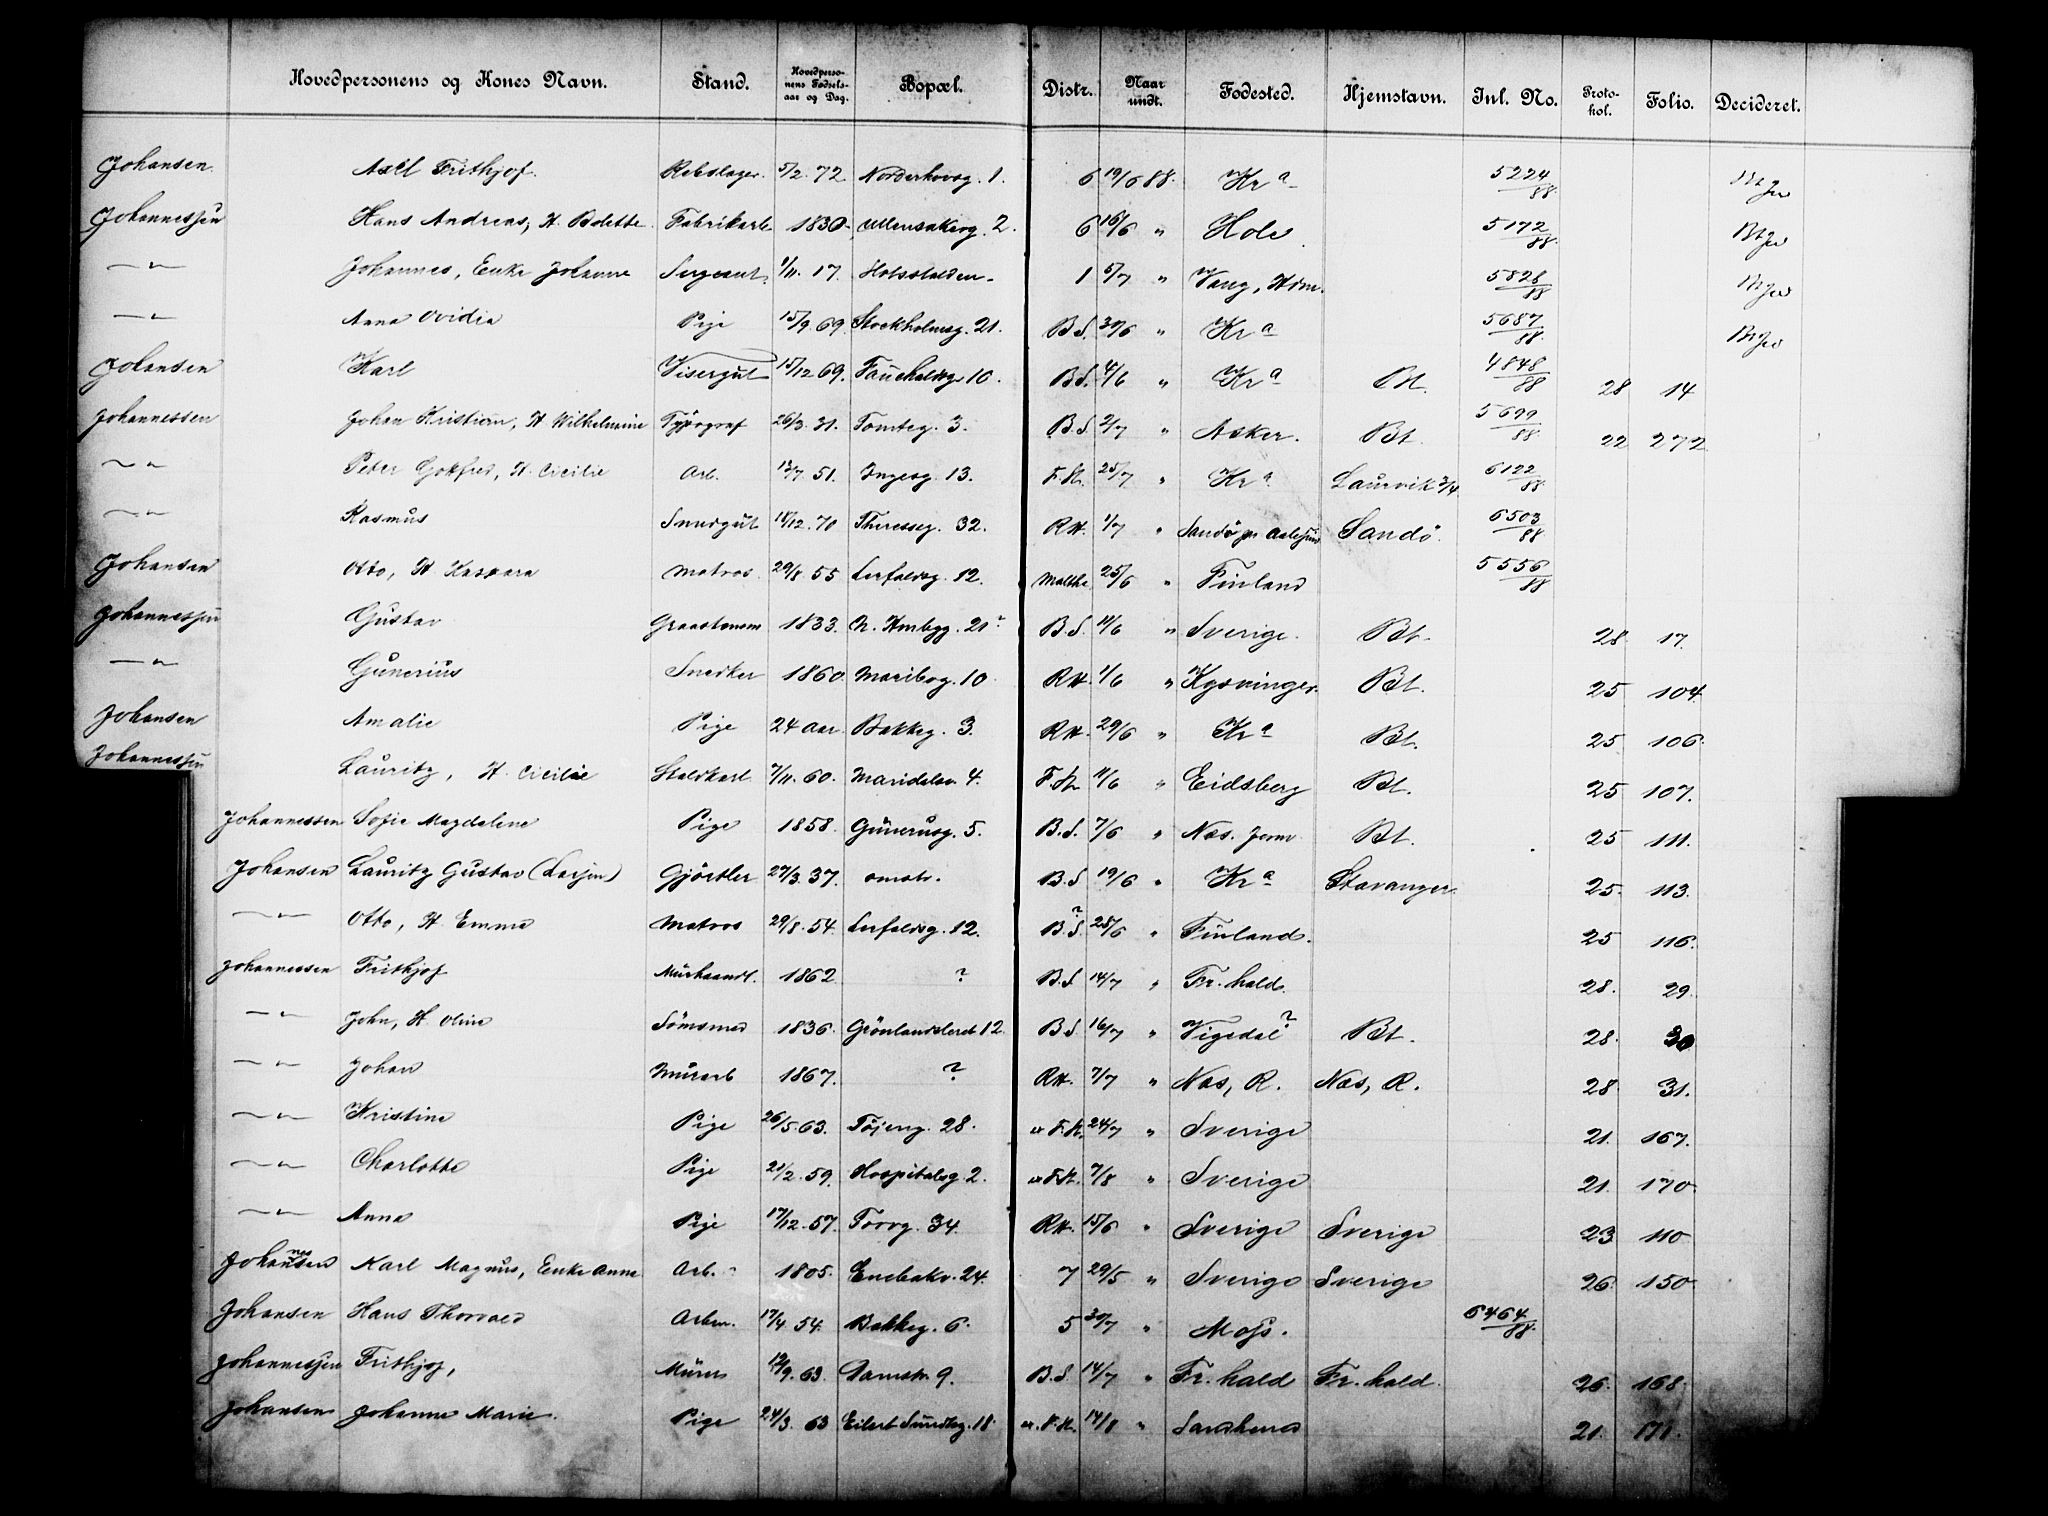 Hovedpersonens og Kones Navn. Stand. Hovedperso-nens Fødsels-aar og Dag. Bopæl. Distr. Naar undt. Fødested. Hjemstavn. Inl. No. Proto-kol. Folio. Decideret.
Johansen Axel Frithjof. Rebslager. 5/2. 72 Norderhovsg. 1. 6 19/6 88. Kra 5224/88
Johannessen Hans Andreas, H. Bolette Fabrikarb 1830 Ullensakerg. 2. 6 16/6 " Hole 5172/88
—"— Johannes, Enke Johanne Sergeant. 1/11. 17. 1 5/7 " Vang, Hdm. 5828/88
—"— Anna Ovidia Pige 15/9 69 Stockholmsg. 21. B.S. 30/6 " Kra 5687/88
Johansen Karl Visergut 15/12 69. Fauchaldsg. 10. B.S. 4/6 " Kra Bt. 4848/88 28 14
Johannessen Johan Kristian, H. Wilhelmine Typograf 26/3. 31. Tomteg. 3. B.S. 2/7 " Asker. Bt. 5699/88 22 272
—"— Peter Gotfred, H. Cicilie Arb. 13/7. 51. Ingesg. 13. F.K. 25/7 " Kra Laurvik 3/4 6122/88
—"— Rasmus Snedgut 18/12. 70 Theresesg. 32. RH. 1/7 " Sandö pr Aalesund Sandö. 6503/88
Johansen Otto, H. Kaspara Matros. 29/8 55 Lerfaldsg. 12. Malthe 25/6 " Finland 5556/88
Johannessen Gustav 1833. 21? B.S. 11/6 " Sverige. Bt. 28. 17.
—"— Gunerius Snedker 1860. Maribog. 10 RH. 1/6 " Kgsvinger. Bt. 25 104
Johansen Amalie Pige 24 Aar. Bakkeg. 3. RH. 29/6 " Kra Bt. 25 106.
Johannessen Lauritz, H. Cicilie Staldkarl 7/11. 60. Maridalsv. 4. F.K. 11/6 " Eidsberg Bt. 25 107.
Johannessen Sofie Magdalene Pige 1858. Günerusg. 5. B.S. 7/6 " Næs. Bt. 25 111.
Johansen Lauritz Gustav (Larsen) Gjörtler 27/3. 37. omstr. B.S 19/6 " Kra Stavanger. 25. 113.
—"— Otto, H. Emma Matros 29/8. 54. Lerfaldsg. 12. B.S.? 25/6 " Finland. 25 116.
Johannessen Frithjof Murhaandl. 1862 ? B.S 14/7 " Fr.hald. 28. 29.
—"— John, H. Oline Sömsmed 1836. Grönlandsleret 12. B.S. 16/7 " Vigedal? Bt. 28. 30
—"— Johan Murarb 1867. ? RH. 7/7 " Næs, R. Næs, R. 28 31.
—"— Kristine Pige 26/5. 63. Töjeng. 28. F.K. 24/7 " Sverige 21. 167.
—"— Charlotte Pige 21/2. 59. Hospitalsg. 2. F.K. 7/8 " Sverige 21. 170.
—"— Anna Pige 17/12. 57. Torvg. 34. RH. 15/6 " Sverige Sverige 23 110
Johannesen Karl Magnus, Enke Anna Arb. 1805. Enebakv. 24. 7 29/5 " Sverige Sverige 26. 150.
Johansen Hans Thorvald Arbm. 17/4. 54. Bakkeg. 6. 5 30/7 " Moss. 6464/88.
Johannessen Frithjof, Murer 12/9. 63. Damstr. 9. B.S. 14/7 " Fr.hald Fr.hald. 26. 168.
Johansen Johanne Marie. Pige 24/3. 63 Eilert Sundtsg. 18. F.K. 14/8 " 21. 171.